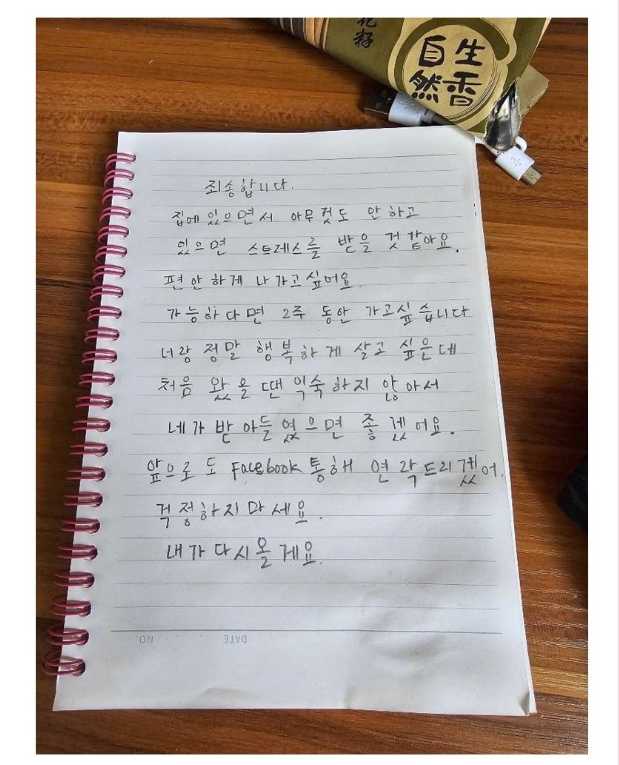 花籽
自然
生香
죄송합니다.
집에 있으면서 아무것도 안 하고
있으면 스트레스를 받을 것 같아요.
편안하게 나가고 싶어요
가능하다면 2주 동안 가고싶습니다
너랑 정말 행복하게 살고 싶은데
처음 왔을 땐 익숙하지 않아서
네가 받아들였으면 좋겠어요.
앞으로도 Facebook 통해 연락드리겠어.
걱정하지마세요.
내가 다시올게요.
DATE
NO.